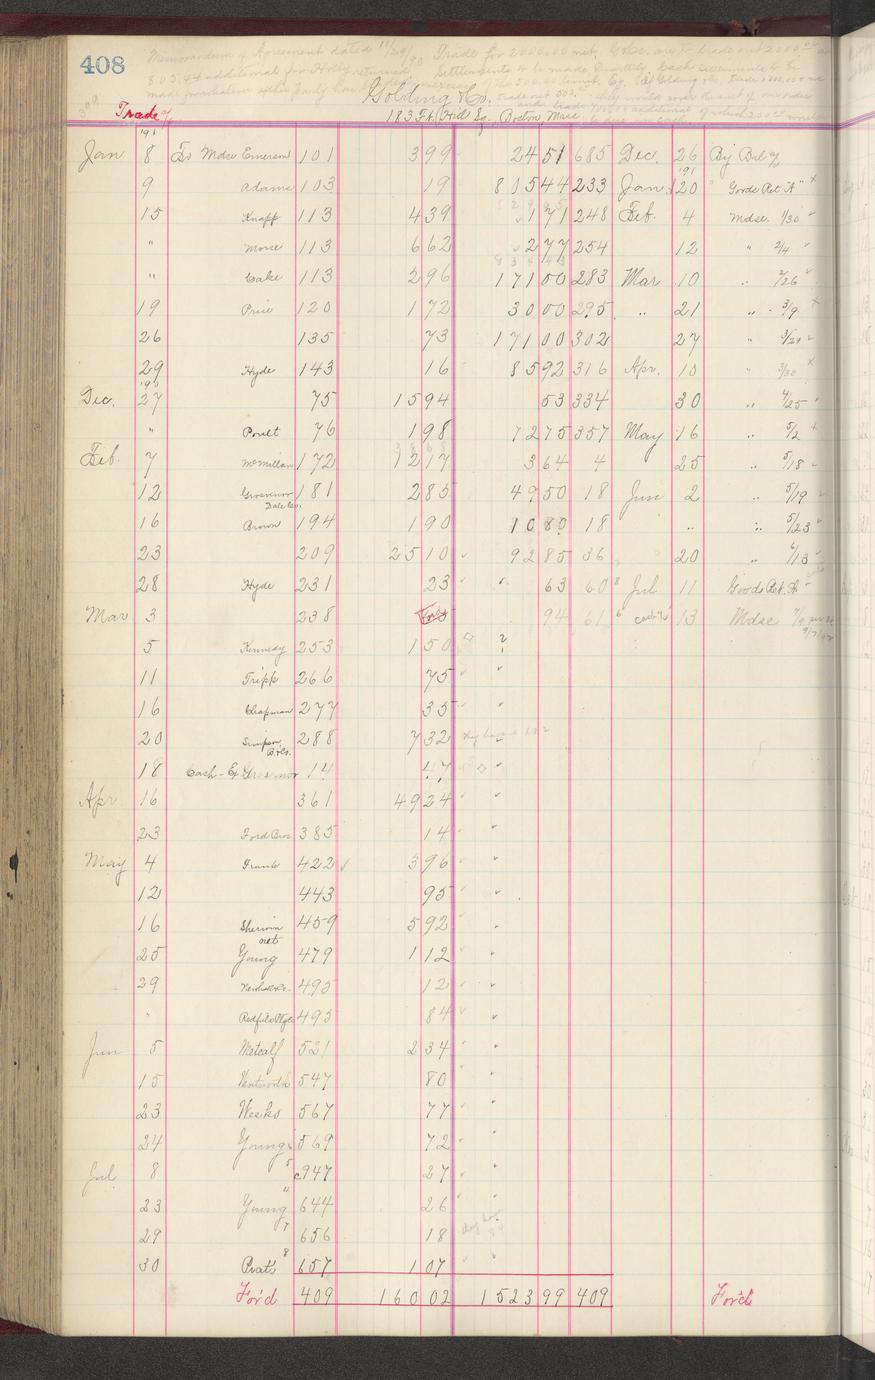 408
Memorandum of Agreement dated 11/29/90 Trade for 2000.00 net, G & Co. are to trade out 2000
805.44 additional for Holly returned Settlements to be made Quarterly, Cash settlements to be
made
Golding & Co.
Trade a/c 183 Ft. Hill Sq., Boston, Mass.
'91
Jan 8 To Mdse Emerson 101 3 99 24 51 685 Dec. 26 By Bal a/c
'91
9 Adams 103 19 805 44 233 Jan 20 " Goods Ret. A" x
15 Knapp 113 4 39 1 71 248 Feb. 4 Mdse. 1/30
" Morse 113 6 62 2 77 254 12 " 2/4
" Cake 113 2 96 171 00 283 Mar 10 " 2/26
19 Price 120 1 72 30 00 295 " 21 " 3/9 x
26 135 73 171 00 302 27 " 3/21
29 Hyde 143 16 85 92 316 Apr. 10 " 3/30 x
'90
Dec. 27 75 15 94 53 334 30 " 4/25
" Poult 76 1 98 72 75 357 May 16 " 5/2
Feb. 7 McMillan 172 12 17 3 64 4 25 " 5/18
12 Grosvenor Dale Co. 181 2 85 49 50 18 Jun 2 " 5/19
16 Brown 194 1 90 10 80 18 " " 5/23
23 209 25 10 92 85 36 20 " 6/13
28 Hyde 231 23 63 60 Jul 11 Goods Ret. A
Mar 3 238 94 61 cash % 13 Mdse 7/9
5 Kennedy 253 1 50
11 Tripp 266 75
16 Chapman 277 35
20 Simpson Bros. 288 7 32
18 Cash - Ex Grosvenor 14 47
Apr 16 361 49 24
23 Ford Bros 385 14
May 4 Frank 422 3 96
12 443 95
16 Sherwin 459 5 92
net
25 Young 479 1 12
29 495 12
" 495 84
Jun 5 Metcalf 521 2 34
15 Wentworth 547 80
23 Weeks 567 77
24 Young 569 72
Jul 8 c947 27
23 Young 644 26
29 656 18
30 Pratt 657 1 07
For'd 409 160 02 1523 99 409 For'd